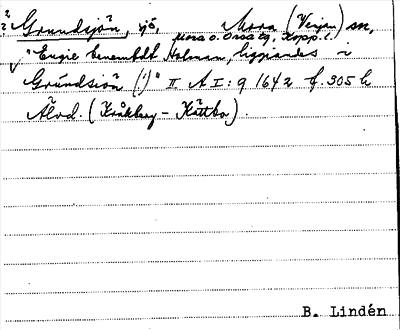 ? Grundsjön, sjö, Mora (Venjan) sn,
Mora o. Orsa tg, Kopp. l.
✓ "Engie benembdt Holman, liggiandes i
Grúndsiön (!)" II A I: 9 1642 f. 305 h
Älvd. (Kråkberg – Kättbo).
B. Lindén